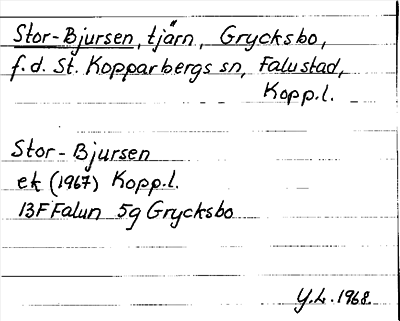 Stor-Bjursen, tjärn, Grycksbo,
f.d. St. Kopparbergs sn, Falu stad,
Kopp.l.
Stor-Bjursen
ek (1967) Kopp.l.
13F Falun 5g Grycksbo
Y.L. 1968.